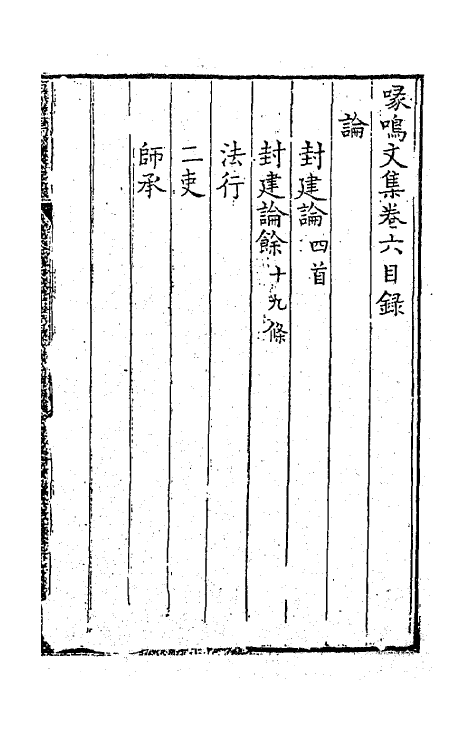 喙鳴文集卷六目録
論
封建論四首
封建論餘十九條
法行
二吏
師承